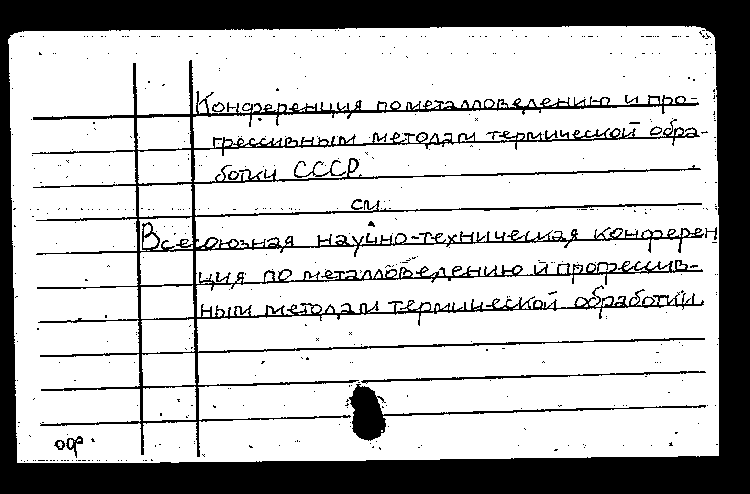 Конференция по металловедению и про-
грессивным методам термической обра-
ботки СССР.
см.
Всесоюзная научно-техническая конферен
ция по металловедению и прогрессив-
ным методам термической обработки.